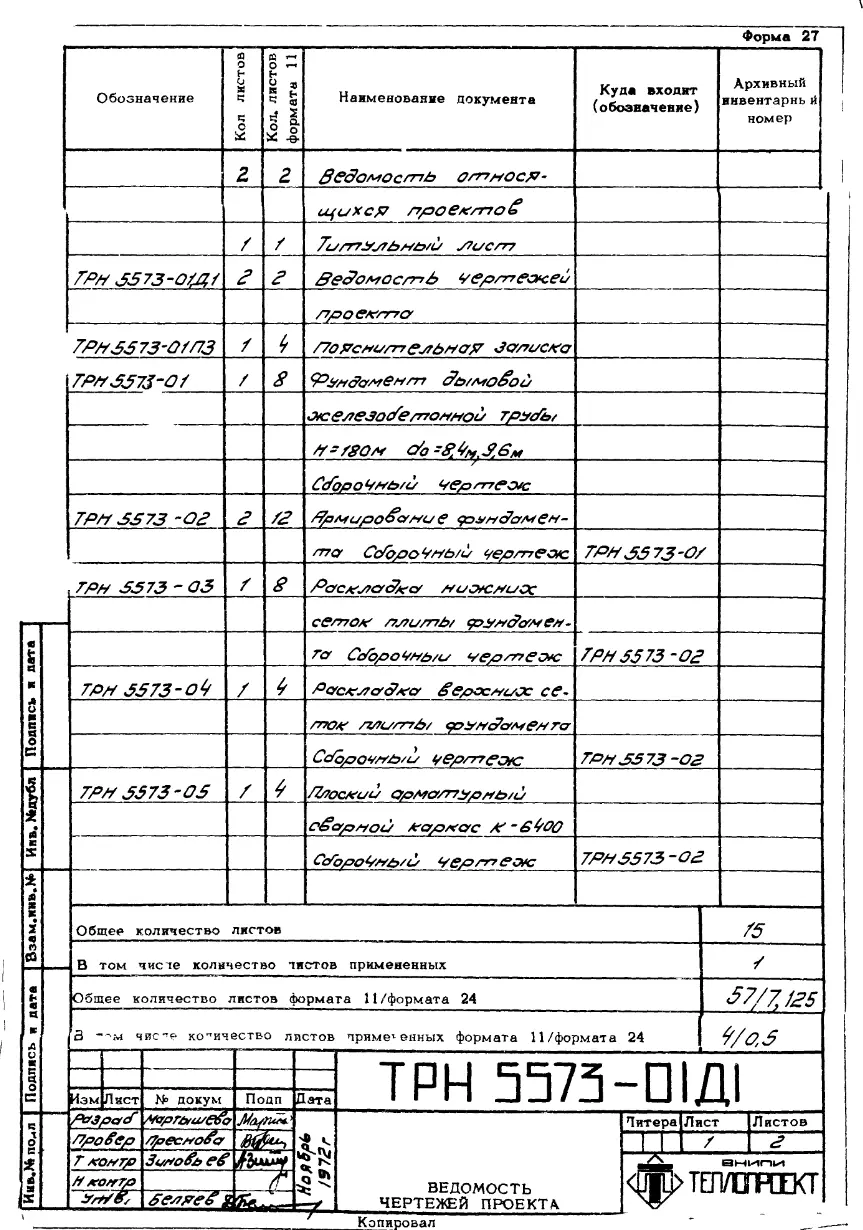 Форма 27
Обозначение
Кол листов
Кол. листов формата 11
Наименование документа
Куда входит (обозначение)
Архивный инвентарный номер
2 2 Ведомость относя-
щихся проектов
1 1 Титульный лист
ТРН 5573-01Д1 2 2 Ведомость чертежей
проекта
ТРН 5573-01ПЗ 1 4 Пояснительная записка
ТРН 5573-01 1 8 Фундамент дымовой
железобетонной трубы
Н=180м do=8,4м, 9,6м
Сборочный чертеж
ТРН 5573-02 2 12 Армирование фундамен-
та Сборочный чертеж ТРН 5573-01
ТРН 5573-03 1 8 Раскладка нижних
сеток плиты фундамен-
та Сборочный чертеж ТРН 5573-02
ТРН 5573-04 1 4 Раскладка верхних се-
ток плиты фундамента
Сборочный чертеж ТРН 5573-02
ТРН 5573-05 1 4 Плоский арматурный
сварной каркас К-6400
Сборочный чертеж ТРН 5573-02
Общее количество листов 15
В том числе количество листов примененных 1
Общее количество листов формата 11/формата 24 57/7,125
В том числе количество листов примененных формата 11/формата 24 4/0,5
Подпись и дата
Инв. №дубл
Взам.инв.№
Подпись и дата
Инв.№ подл
Изм Лист № докум Подп Дата
Разраб Мартышева
Провер Преснова
Т контр Зиновьев
Н контр
Утв. Беляев
Ноябрь 1972г
ТРН 5573-01Д1
ВЕДОМОСТЬ
ЧЕРТЕЖЕЙ ПРОЕКТА
Литера Лист Листов
1 2
ВНИПИ
ТЕПЛОПРОЕКТ
Копировал